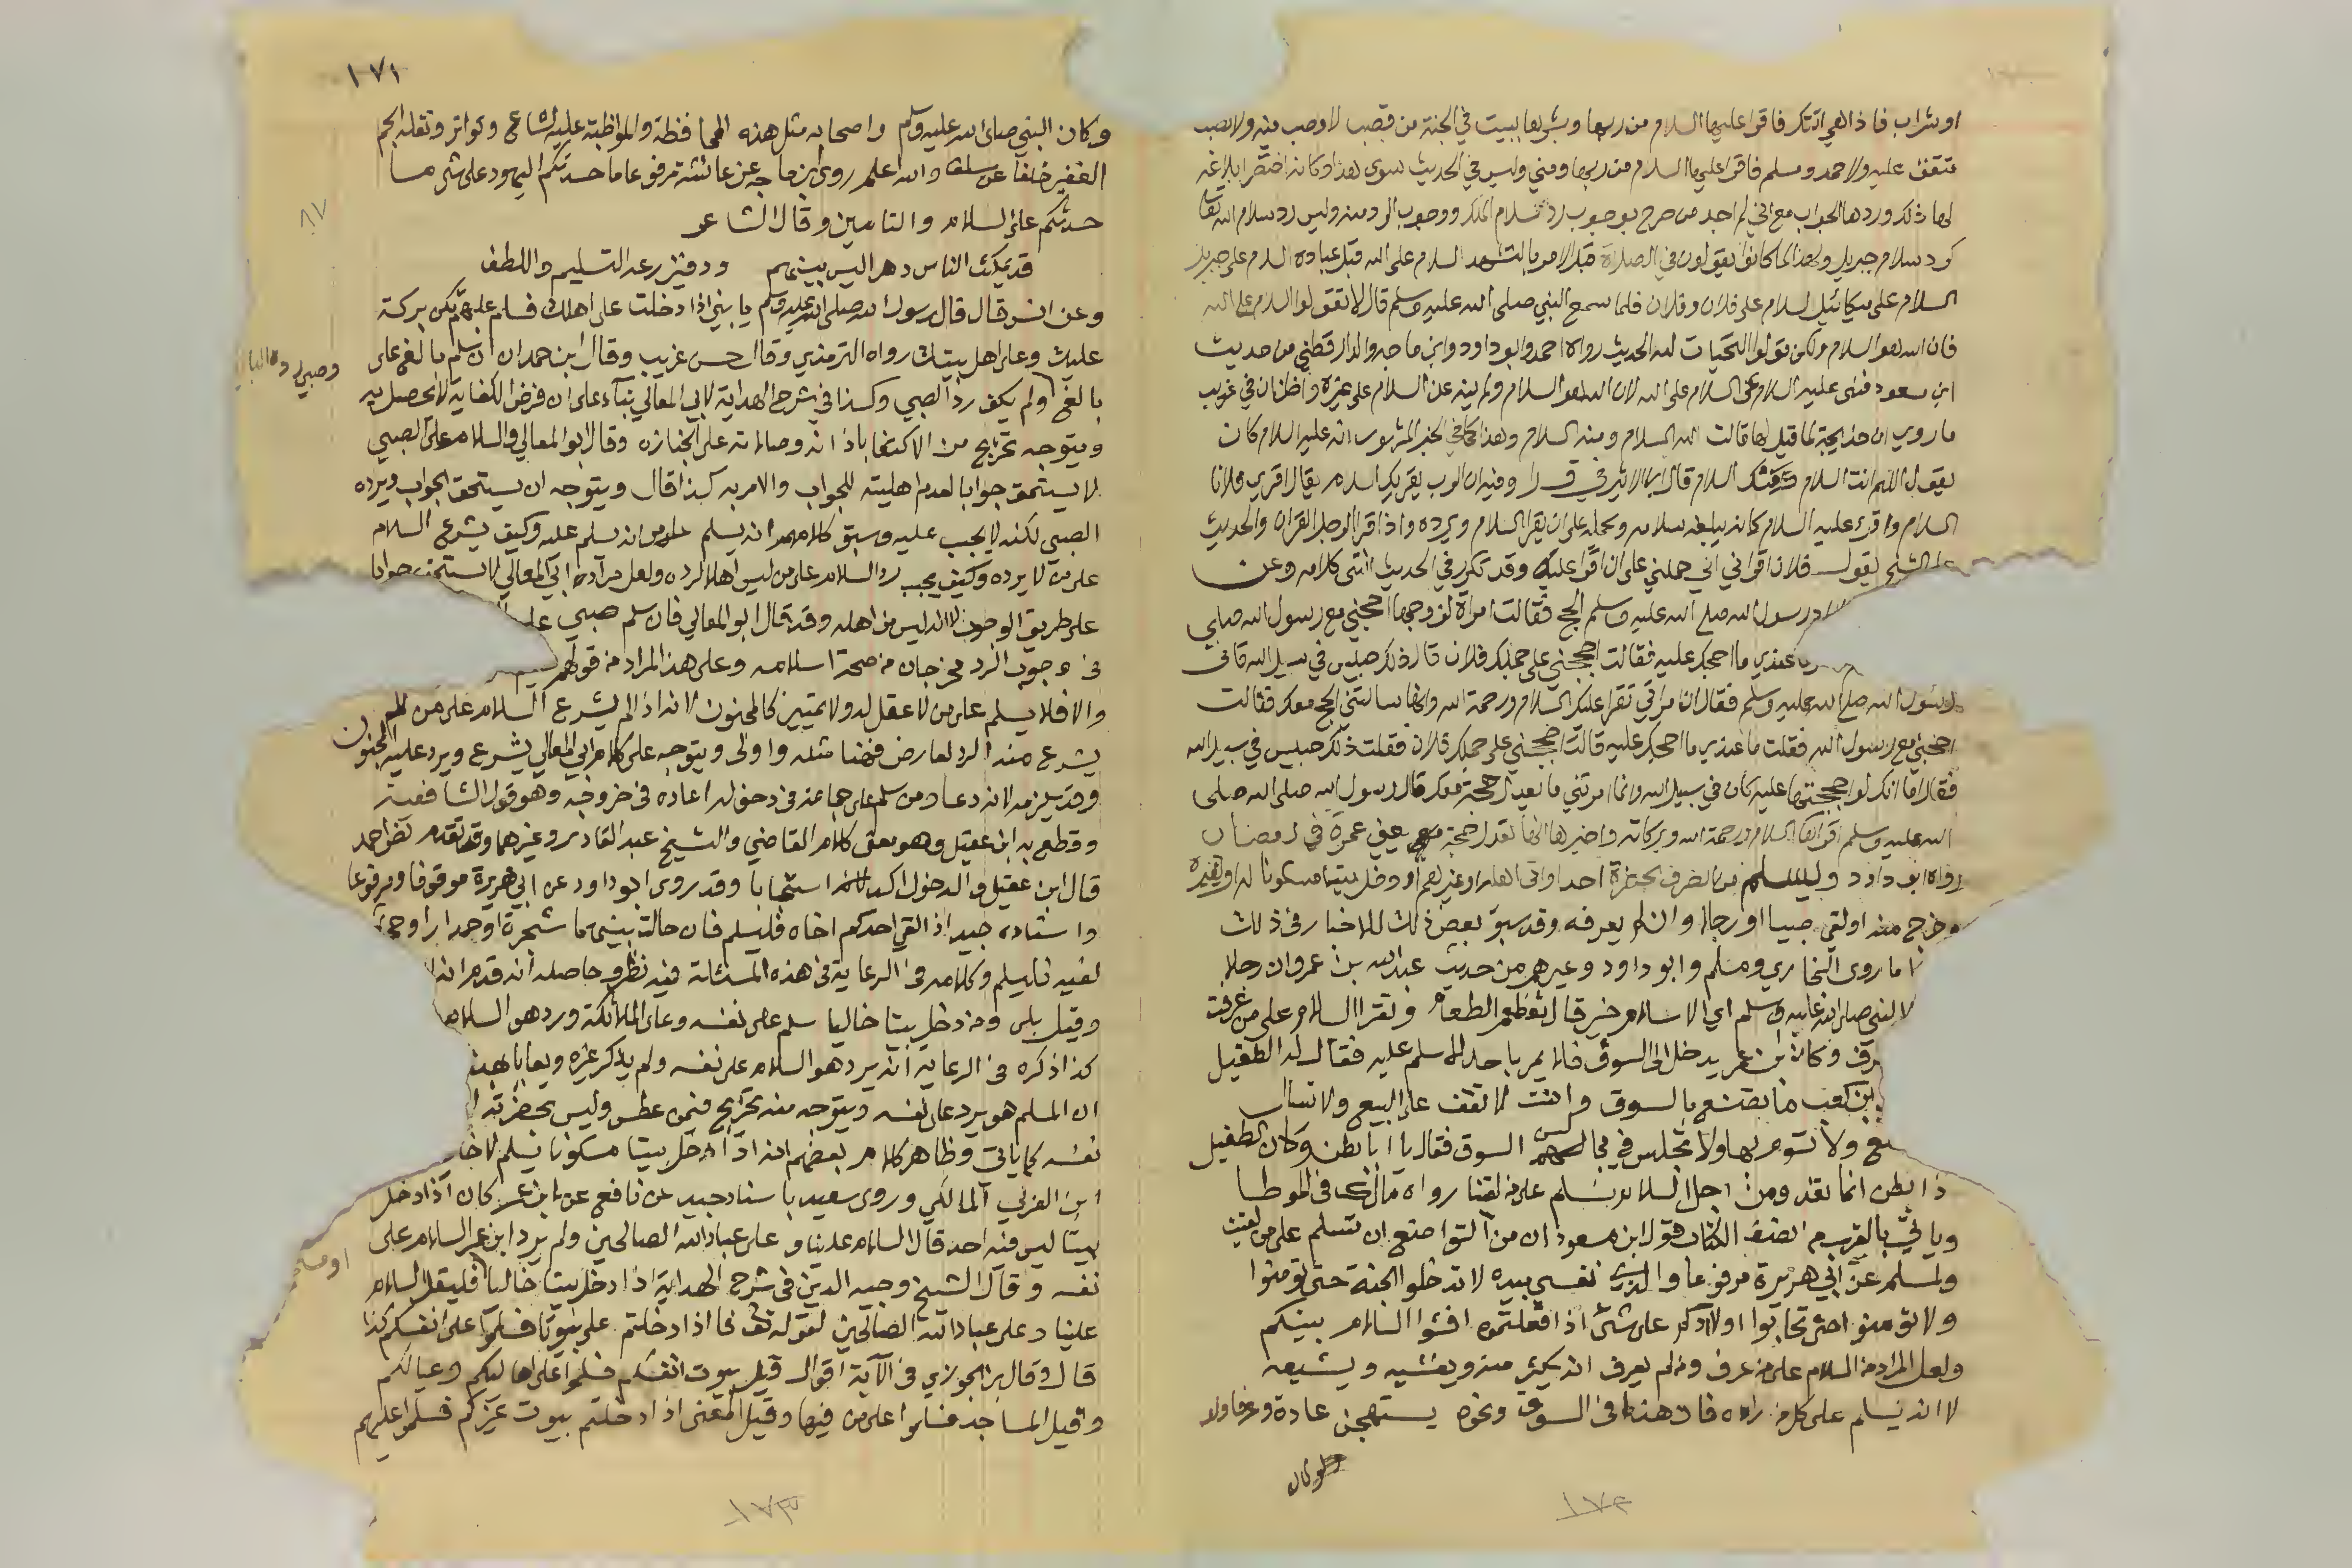 او شراب فاذا هي اتتك فاقرا عليها السلام من ربها وبشرها ببيت في الجنة من قصب لا وصب فيه ولا نصب
متفق عليه ولاحمد ومسلم فاقرا عليها السلام من ربها ومني وليس في الحديث سوى هذا وكانه اختصر ابلاغه
لها ذلك وردها الجواب مع اني لم اجد من صرح بوجوب رد سلام الملك ووجوب الرد منه وليس رد سلام الله تعالى
كرد سلام جبريل ولهذا لما كانوا يقولون في الصلاة قبل الامر بالتشهد السلام على الله قبل عباده السلام على جبريل
السلام على ميكائيل السلام على فلان وفلان فلما سمع النبي صلى الله عليه وسلم قال لا تقولوا السلام على الله
فان الله هو السلام ولكن قولوا التحيات لله الحديث رواه احمد وابو داود وابن ماجه والدارقطني من حديث
ابن مسعود فنهى عليه السلام عن السلام على الله لان الله هو السلام ولم ينه عن السلام على غيره واظن ان في غريب
ما روي ان خديجة لما قيل لها قالت الله السلام ومنه السلام وهذا كما في الخبر المشهور انه عليه السلام كان
يقول اللهم انت السلام ومنك السلام قال ابن الاثير في ق را وفيه ان الرب يقريك السلام يقال اقري فلانا
السلام واقرا عليه السلام كانه يبلغه سلامه ويحمله على ان يقرا السلام ويرده واذا قرا الرجل القران والحديث
على الشيخ يقول فلان اقراني اي حملني على ان اقرا عليه وقد تكرر في الحديث انتهى كلامه وعن
رسول الله صلى الله عليه وسلم الحج فقالت امراة لزوجها احجني مع رسول الله صلى
ما عندي ما احجك عليه فقالت احجني على جملك فلان قال ذلك حبيس في سبيل الله فاتى
رسول الله صلى الله عليه وسلم فقال ان امراتي تقرا عليك السلام ورحمة الله وانها سالتني الحج معك فقالت
احجني مع رسول الله فقلت ما عندي ما احجك عليه قالت احججني على جملك فلان فقلت ذلك حبيس في سبيل الله
فقال اما انك لو احججتها عليه كان في سبيل الله وانها امرتني ما يعدل حجة معك قال رسول الله صلى الله صلى
الله عليه وسلم اقراها السلام ورحمة الله وبركاته واخبرها انها تعدل حجة معي يعني عمرة في رمضان
رواه ابو داود وليسلم من انصرف بحضرة احد او اتى اهله او غيرهم او دخل بيتا مسكونا له او لغيره
وخرج منه او لقي صبيا او رجلا وان لم يعرفه وقد سبق بعض ذلك للاخبار في ذلك
ما روى البخاري ومسلم وابو داود وغيرهم من حديث عبد الله بن عمرو ان رجلا
النبي صلى الله عليه وسلم اي الاسلام خير قال تطعم الطعام وتقرا السلام على من عرفت
وكان ابن عمر يدخل الى السوق فلا يمر باحد الا سلم عليه فقال له الطفيل
بن كعب ما تصنع بالسوق وانت لا تقف على البيع ولا تسال
ولا تسوم بها ولا تجلس في مجالس السوق فقال يا ابا بطن وكان الطفيل
ذا بطن انما نغدو من اجل السلام نسلم على من لقينا رواه مالك في الموطا
وياتي بالقرب من نصف الكتاب قول ابن مسعود ان من التواضع ان تسلم على من لقيت
ولمسلم عن ابي هريرة مرفوعا والذي نفسي بيده لا تدخلوا الجنة حتى تؤمنوا
ولا تؤمنوا حتى تحابوا اولا ادلكم على شيء اذا فعلتموه افشوا السلام بينكم
ولعل المراد من السلام على من عرف ومن لم يعرف انه يكثر منه ويفشيه ويشيعه
لا انه يسلم على كل من راه فان هذا في السوق ونحوه يستهجن عادة وعرفا ولو
ولو كان
١٧٢
١٧١
وكان النبي صلى الله عليه وسلم واصحابه مثل هذه المحافظة والمواظبة عليه لشاع وتواتر ونقله الجم
الغفير خلفا عن سلف والله اعلم روى ابن ماجه عن عائشة مرفوعا ما حسدتكم اليهود على شيء ما
حسدتكم على السلام والتامين وقال الشاعر
قد يمكث الناس دهرا ليس بينهم ود فيزرعه التسليم واللطف
٨٧
وعن انس قال قال رسول الله صلى الله عليه وسلم يا بني اذا دخلت على اهلك فسلم عليهم تكن بركة
عليك وعلى اهل بيتك رواه الترمذي وقال حسن غريب وقال ابن حمدان ان سلم بالغ على
بالغ ولم يكف رد الصبي وكذا في شرح الهداية لابي المعالي بناء على ان فرض الكفاية لا يحصل به
ويتوجه تخريج من الاكتفا باذانه وصلاته على الجنازه وقال ابو المعالي والسلام على الصبي
لا يستحق جوابا لعدم اهليته للجواب والامر به كذا قال ويتوجه ان يستحق الجواب ويرده
الصبي لكنه لا يجب عليه وسبق كلامهم انه يسلم على من انه يسلم عليه وكيف يشرع السلام
على من لا يرده وكيف يجب رد السلام على من ليس اهلا لرده ولعل مراده ابي المعالي لا يستحق جوابا
على طريق الوجوب لا انه ليس من اهله وقد قال ابو المعالي فان سلم صبي على
في وجوب الرد مخرجان من صحة اسلامه وعلى هذا المراد من قولهم
والا فلا يسلم على من لا عقل له ولا تمييز كالمجنون لانه اذا لم يشرع السلام على من لم
يشرع منه الرد لعارض فهنا مثله واولى ويتوجه على كلام ابي المعالي يشرع ويرد عليه المجنون
وقد يلزمه لانه دعا ومن سلم على جماعة في دخوله اعاده في خروجه وهو قول الشافعية
وقطع به ابن عقيل وهو معنى كلام القاضي والشيخ عبد القادر وغيرهما وقد تقدم نص احمد
قال ابن عقيل والدخول اكد استحبابا وقد روى ابو داود عن ابي هريرة موقوفا ومرفوعا
واسناده جيد اذا لقي احدكم اخاه فليسلم فان حالت بينهما شجرة او جدار او حجر
لقيه فليسلم وكلامه في الرعاية في هذه المسئلة فيه نظر وحاصله انه قدم انه
وقيل بلى ومن دخل بيتا خاليا سلم على نفسه وعلى الملائكة ورد هو السلام
كذا ذكره في الرعاية انه يرد هو السلام على نفسه ولم يذكر غيره ويعايا بهذا
ان المسلم هو يرد على نفسه ويتوجه منه تخريج فيمن عطس وليس بحضرته
نفسه كما ياتي وظاهر كلام بعضهم انه اذا دخل بيتا مسكونا يسلم لا خاليا
ابن العربي المالكي وروى سعيد باسناد جيد عن نافع عن ابن عمر كان اذا دخل
بيتا ليس فيه احد قال السلام علينا وعلى عباد الله الصالحين ولم يرد ابن عمر السلام على
نفسه وقال الشيخ وجيه الدين في شرح الهداية اذا دخل بيتا خاليا فليقل السلام
علينا وعلى عباد الله الصالحين لقوله تعالى فاذا دخلتم على بيوتا فسلموا على انفسكم كذا
قال وقال ابن الجوزي في الآية اقوال قيل بيوت انفسكم فسلموا على اهاليكم وعيالكم
وقيل المساجد فسلموا على من فيها وقيل المعنى اذا دخلتم بيوت غيركم فسلموا عليهم
١٧٣